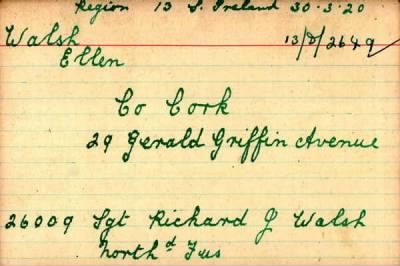 Region 13 S. Ireland 30.3.20
Walsh 13/D/2649
Ellen
Co Cork
29 Gerald Griffin Avenue
26009 Sgt Richard J Walsh
North^d Fus